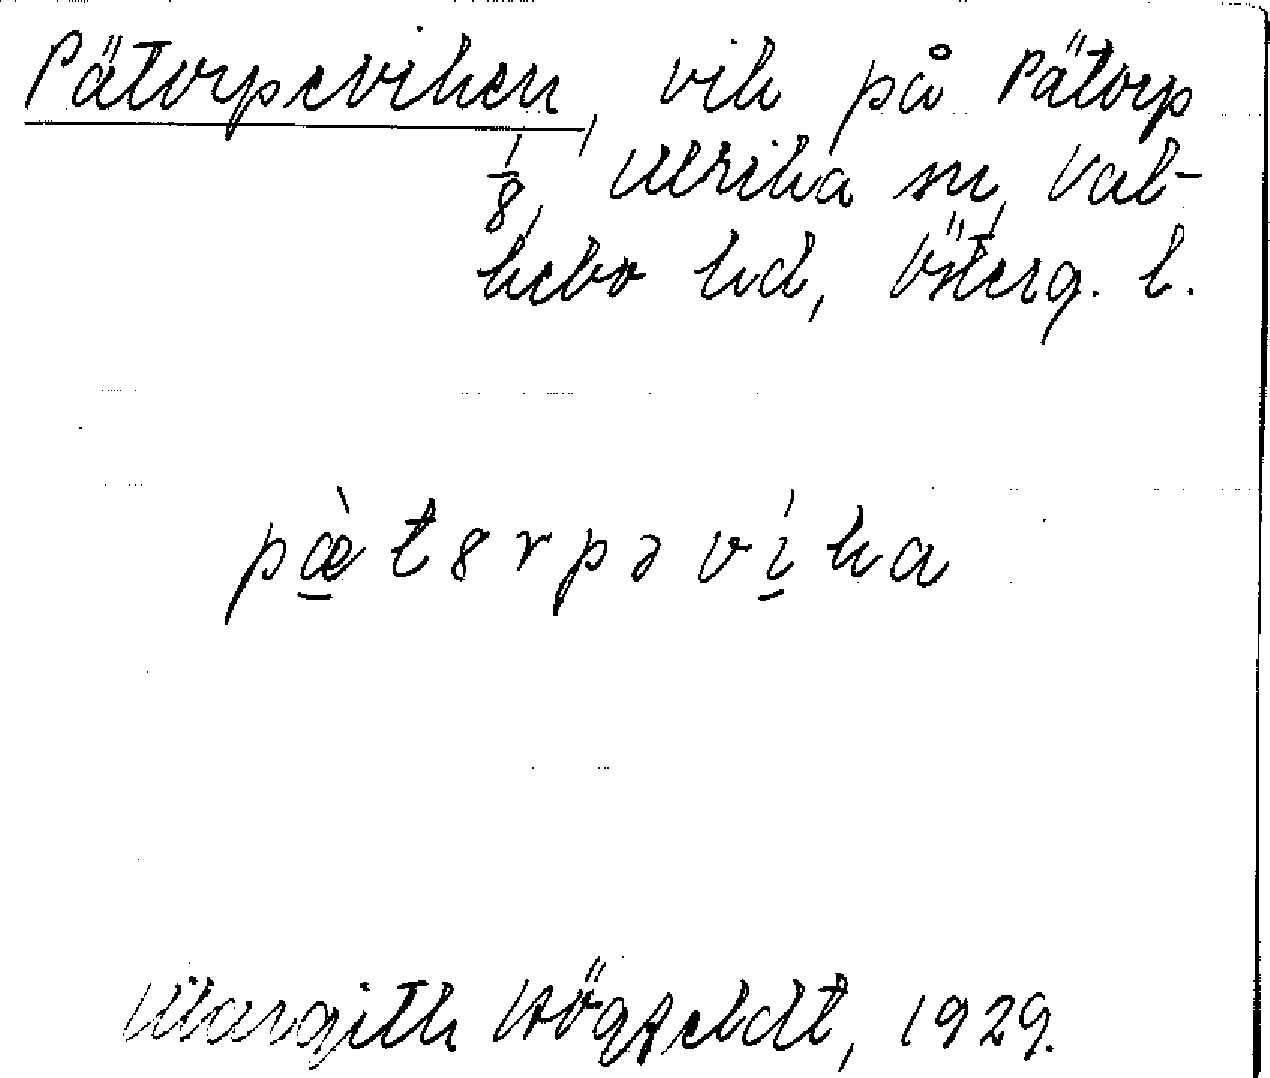 Pätorpeviken, vik på Pätorp
1/8, Ulrika sn, Val-
kebo hd, Österg. l.
pæ̀t8rpəvíka
Margith Högfeldt, 1929.